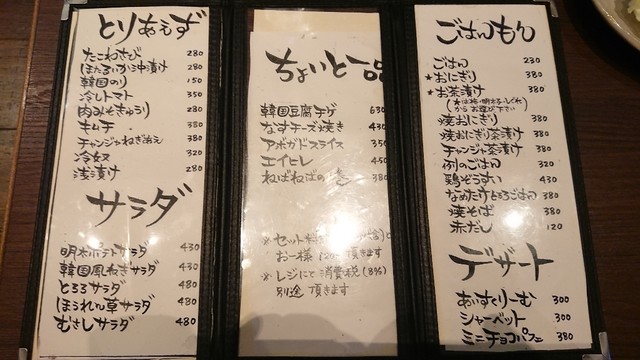 とりあえず
たこわさび 280
ほたるいか沖漬け 280
韓国のり 150
冷しトマト 350
肉みそきゅうり 280
キムチ 380
チャンジャねぎ和え 380
冷奴 320
浅漬け 280
サラダ
明太ポテトサラダ 430
韓国風ねぎサラダ 430
とろろサラダ 480
ほうれん草サラダ 480
むさしサラダ 480
ちょいと一品
韓国豆腐チゲ 630
なすチーズ焼き 430
アボガドスライス 350
エイヒレ 450
ねばねばの 380
※セット料
お一様 頂きます
※レジにて消費税(8%)
別途 頂きます
ごはんもん
ごはん 230
★おにぎり 380
★お茶漬け 380
(★は梅・明太子・しぐれ
からお選び下さい)
焼おにぎり 380
焼おにぎり茶漬け 380
チャンジャ茶漬け 380
例のごはん 320
鶏ぞうすい 430
なめたけとろろごはん 380
焼そば 380
赤だし 120
デザート
あいすくりーむ 300
シャーベット 300
ミニチョコパフェ 380